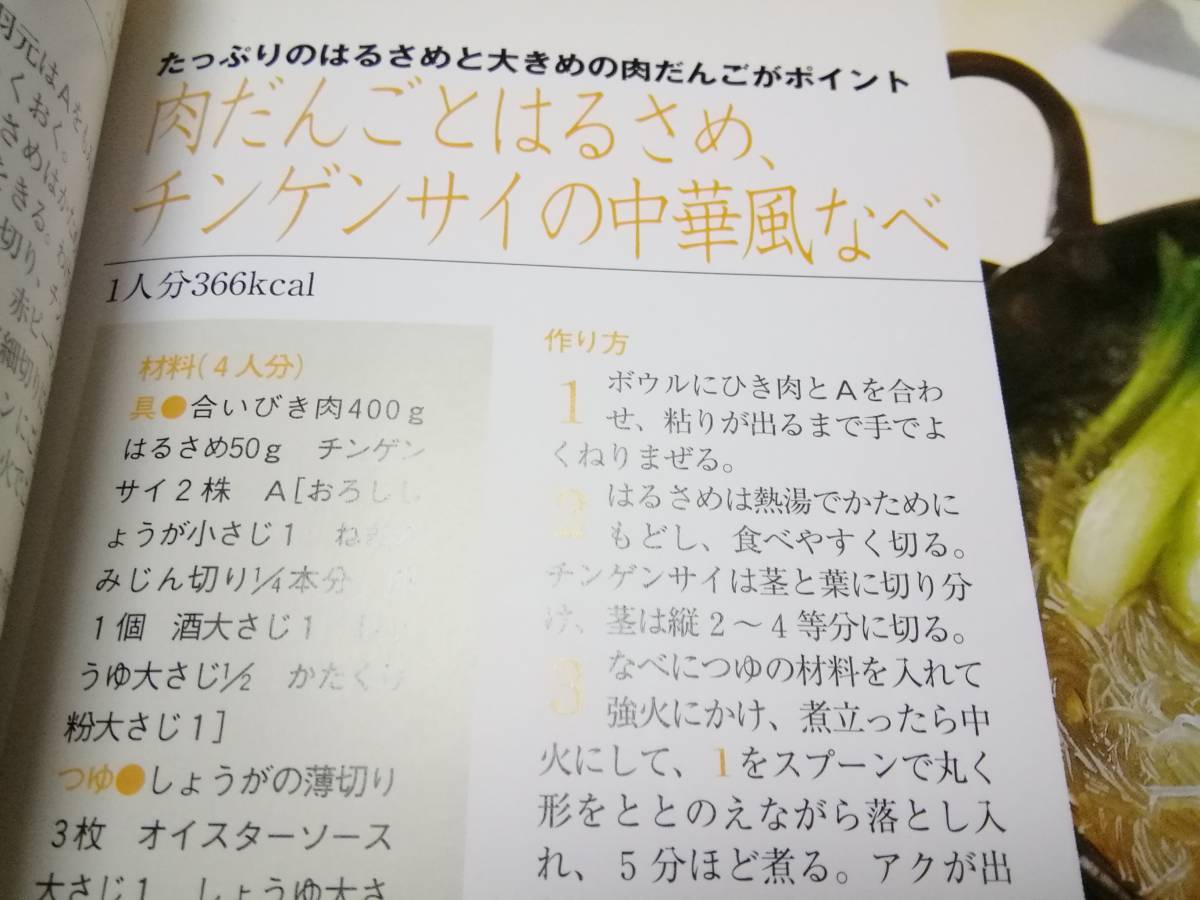 たっぷりのはるさめと大きめの肉だんごがポイント
肉だんごとはるさめ、
チンゲンサイの中華風なべ
1人分366kcal
材料(4人分)
具●合いびき肉400g
はるさめ50g チンゲン
サイ2株 A[おろしし
ょうが小さじ1 ね
みじん切り1/4本分
1個 酒大さじ1
うゆ大さじ1/2 かたくり
粉大さじ1]
つゆ●しょうがの薄切り
3枚 オイスターソース
大さじ1 しょうゆ大さ
作り方
1 ボウルにひき肉とAを合わ
せ、粘りが出るまで手でよ
くねりまぜる。
2 はるさめは熱湯でかために
もどし、食べやすく切る。
チンゲンサイは茎と葉に切り分
け、茎は縦2〜4等分に切る。
3 なべにつゆの材料を入れて
強火にかけ、煮立ったら中
火にして、1をスプーンで丸く
形をととのえながら落とし入
れ、5分ほど煮る。アクが出
羽元はAをし
くおく。
さめはかた
きる。
切り、チン
赤ピー
細切り
ンにこ
火で